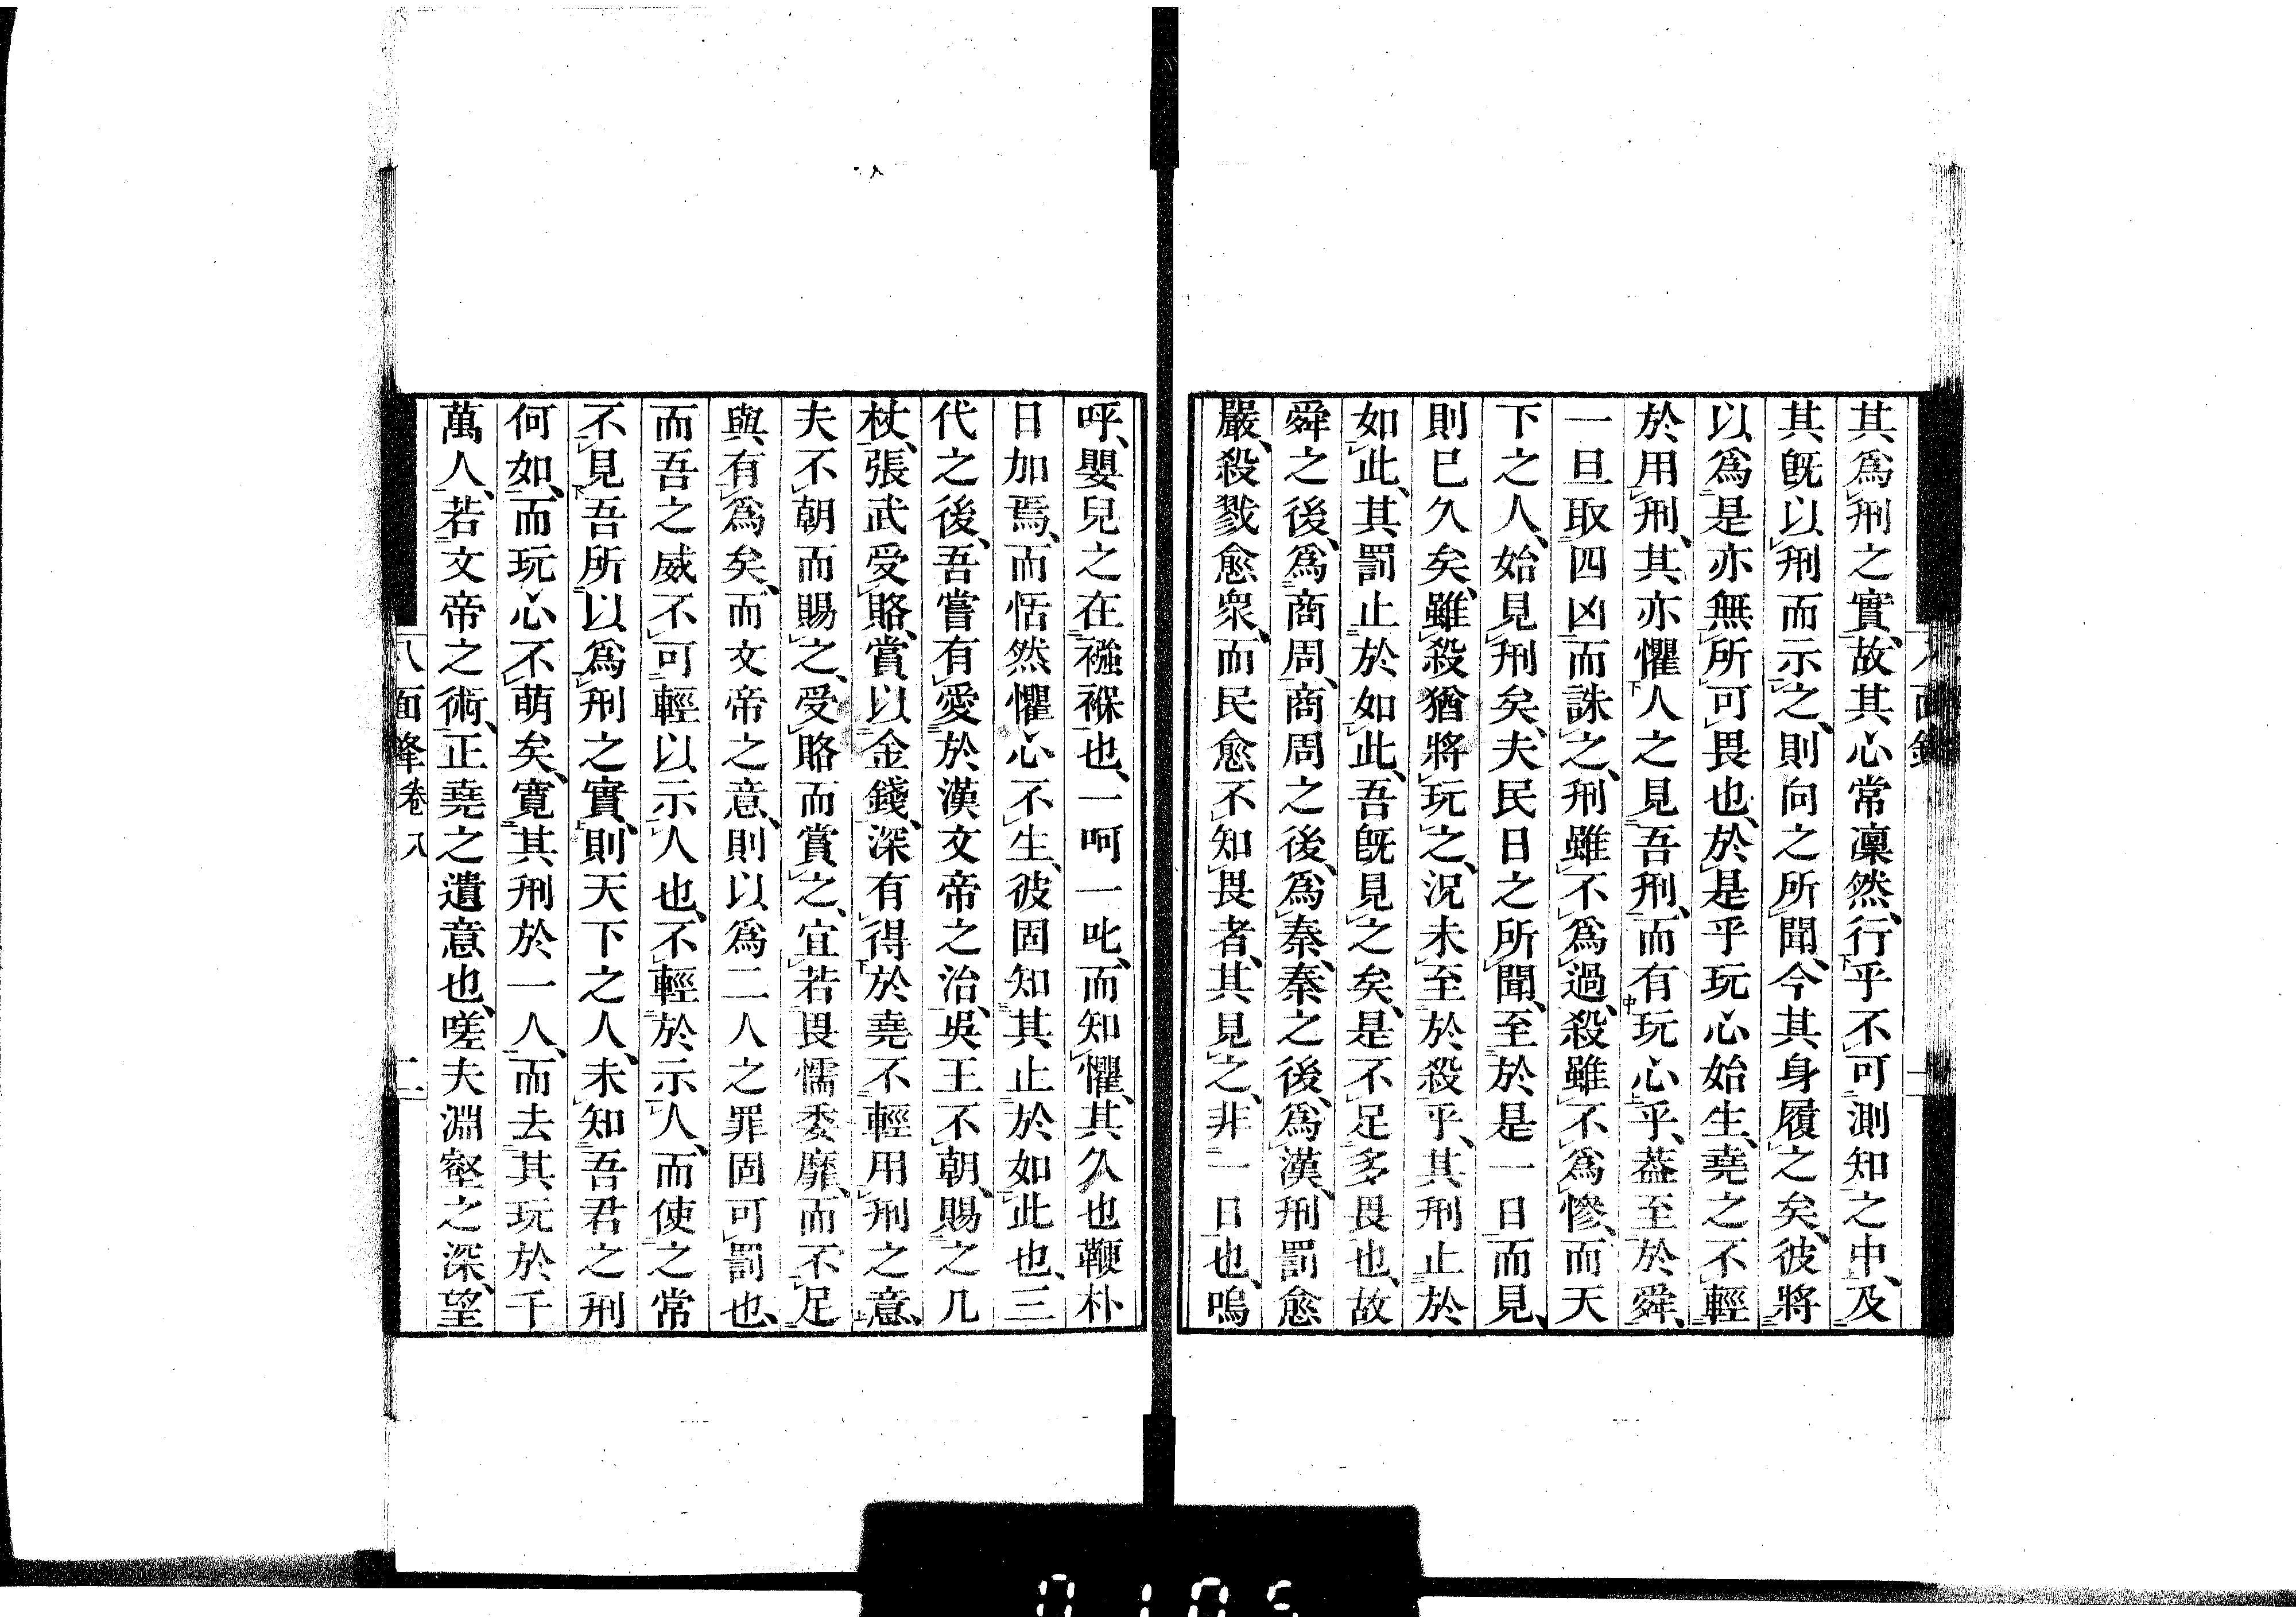 其爲刑之實、故其心常凜然、行乎不可測知之中、及
其既以刑而示之、則向之所聞、今其身履之矣、彼將
以爲是亦無所可畏也、於是乎玩心始生、堯之不輕
於用刑、其亦懼人之見吾刑、而有玩心乎、葢至於舜、
一旦取四凶而誅之、刑雖不爲過、殺雖不爲慘、而天
下之人、始見刑矣、夫民日之所聞、至於是一日而見、
則已久矣、雖殺猶將玩之、況未至於殺乎、其刑止於
如此、其罰止於如此、吾既見之矣、是不足多畏也、故
舜之後、爲商周、商周之後、爲秦、秦之後、爲漢、刑罰愈
嚴、殺戮愈衆、而民愈不知畏者、其見之、非一日也、嗚
呼、嬰兒之在襁褓也、一呵一叱、而知懼、其久也鞭朴
日加焉、而恬然懼心不生、彼固知其止於如此也、三
代之後、吾嘗有愛於漢文帝之治、吳王不朝、賜之几
杖、張武受賂、賞以金錢、深有得於堯不輕用刑之意、
夫不朝而賜之、受賂而賞之、宜若畏懦委靡、而不足
與有爲矣、而文帝之意、則以爲二人之罪固可罰也、
而吾之威不可輕以示人也、不輕於示人、而使之常
不見吾所以爲刑之實、則天下之人、未知吾君之刑
何如、而玩心不萌矣、寬其刑於一人、而去其玩於千
萬人、若文帝之術、正堯之遺意也、嗟夫淵壑之深、望
八面鋒卷八 二